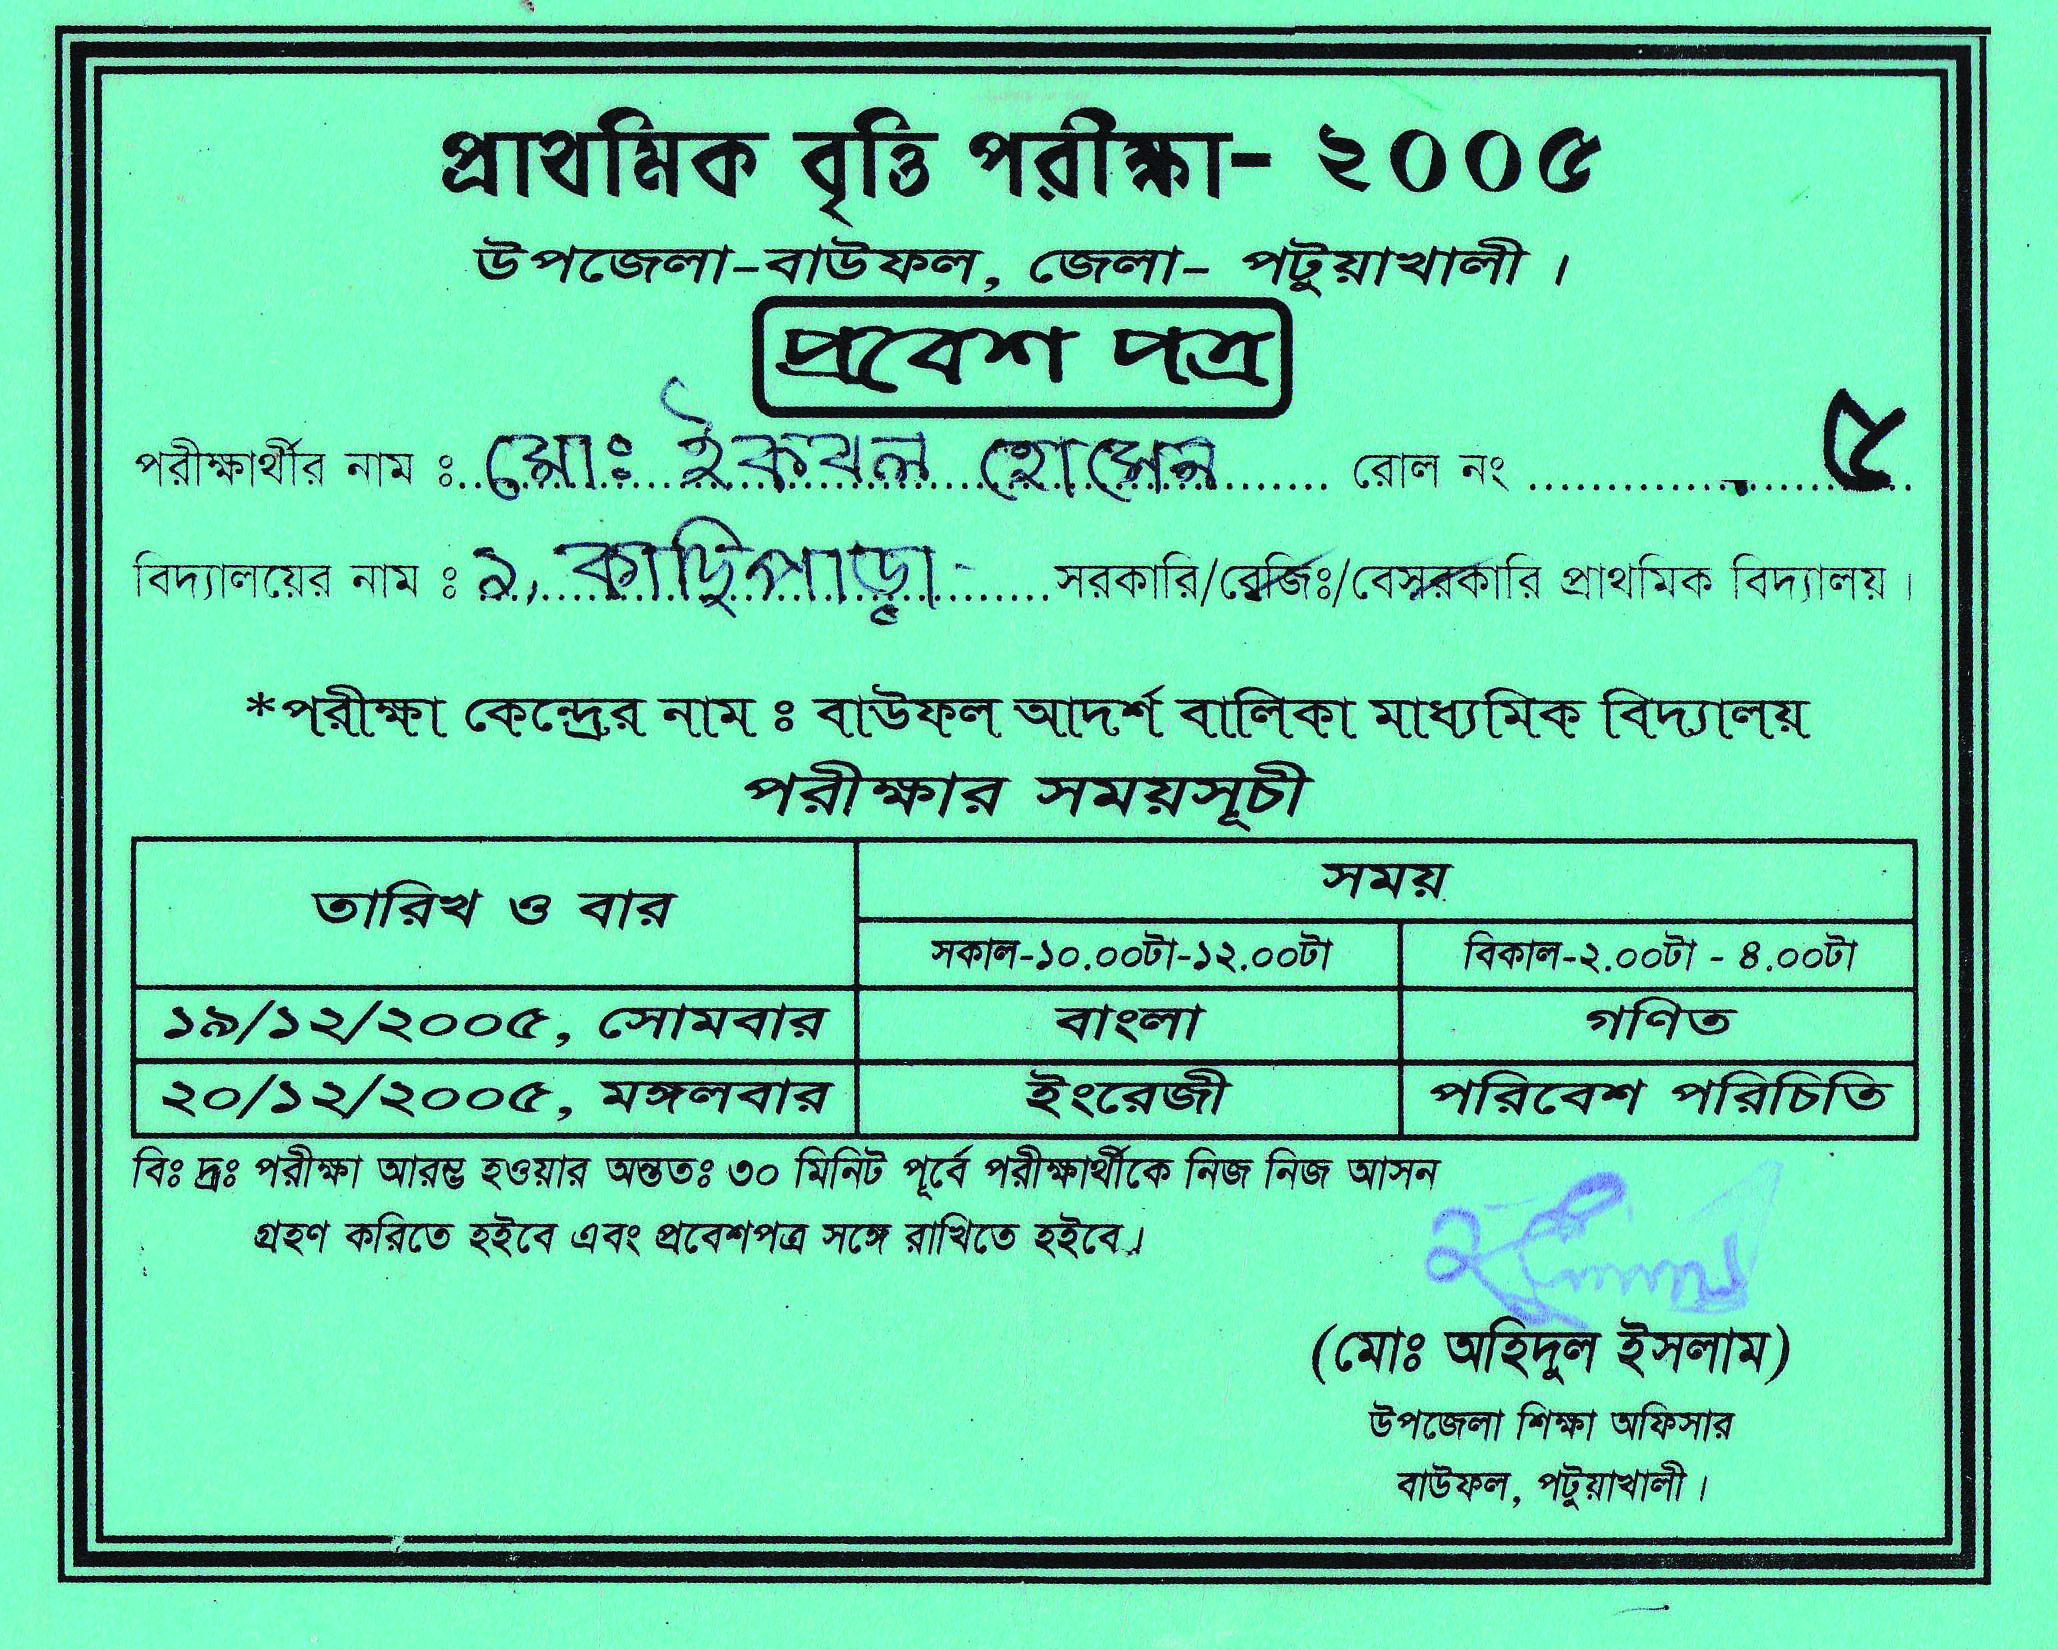 প্রাথমিক বৃত্তি পরীক্ষা- ২০০৫
উপজেলা-বাউফল, জেলা- পটুয়াখালী ।
প্রবেশ পত্র
পরীক্ষার্থীর নাম ঃ মোঃ ইকবাল হোসেন রোল নং ৫
বিদ্যালয়ের নাম ঃ সরকারি/রেজিঃ/বেসরকারি প্রাথমিক বিদ্যালয় ।
*পরীক্ষা কেন্দ্রের নাম ঃ বাউফল আদর্শ বালিকা মাধ্যমিক বিদ্যালয়
পরীক্ষার সময়সূচী
তারিখ ও বার সময়
সকাল-১০.০০টা-১২.০০টা বিকাল-২.০০টা - ৪.০০টা
১৯/১২/২০০৫, সোমবার বাংলা গণিত
২০/১২/২০০৫, মঙ্গলবার ইংরেজী পরিবেশ পরিচিতি
বিঃ দ্রঃ পরীক্ষা আরম্ভ হওয়ার অন্ততঃ ৩০ মিনিট পূর্বে পরীক্ষার্থীকে নিজ নিজ আসন
গ্রহণ করিতে হইবে এবং প্রবেশপত্র সঙ্গে রাখিতে হইবে ।
(মোঃ অহিদুল ইসলাম)
উপজেলা শিক্ষা অফিসার
বাউফল, পটুয়াখালী ।